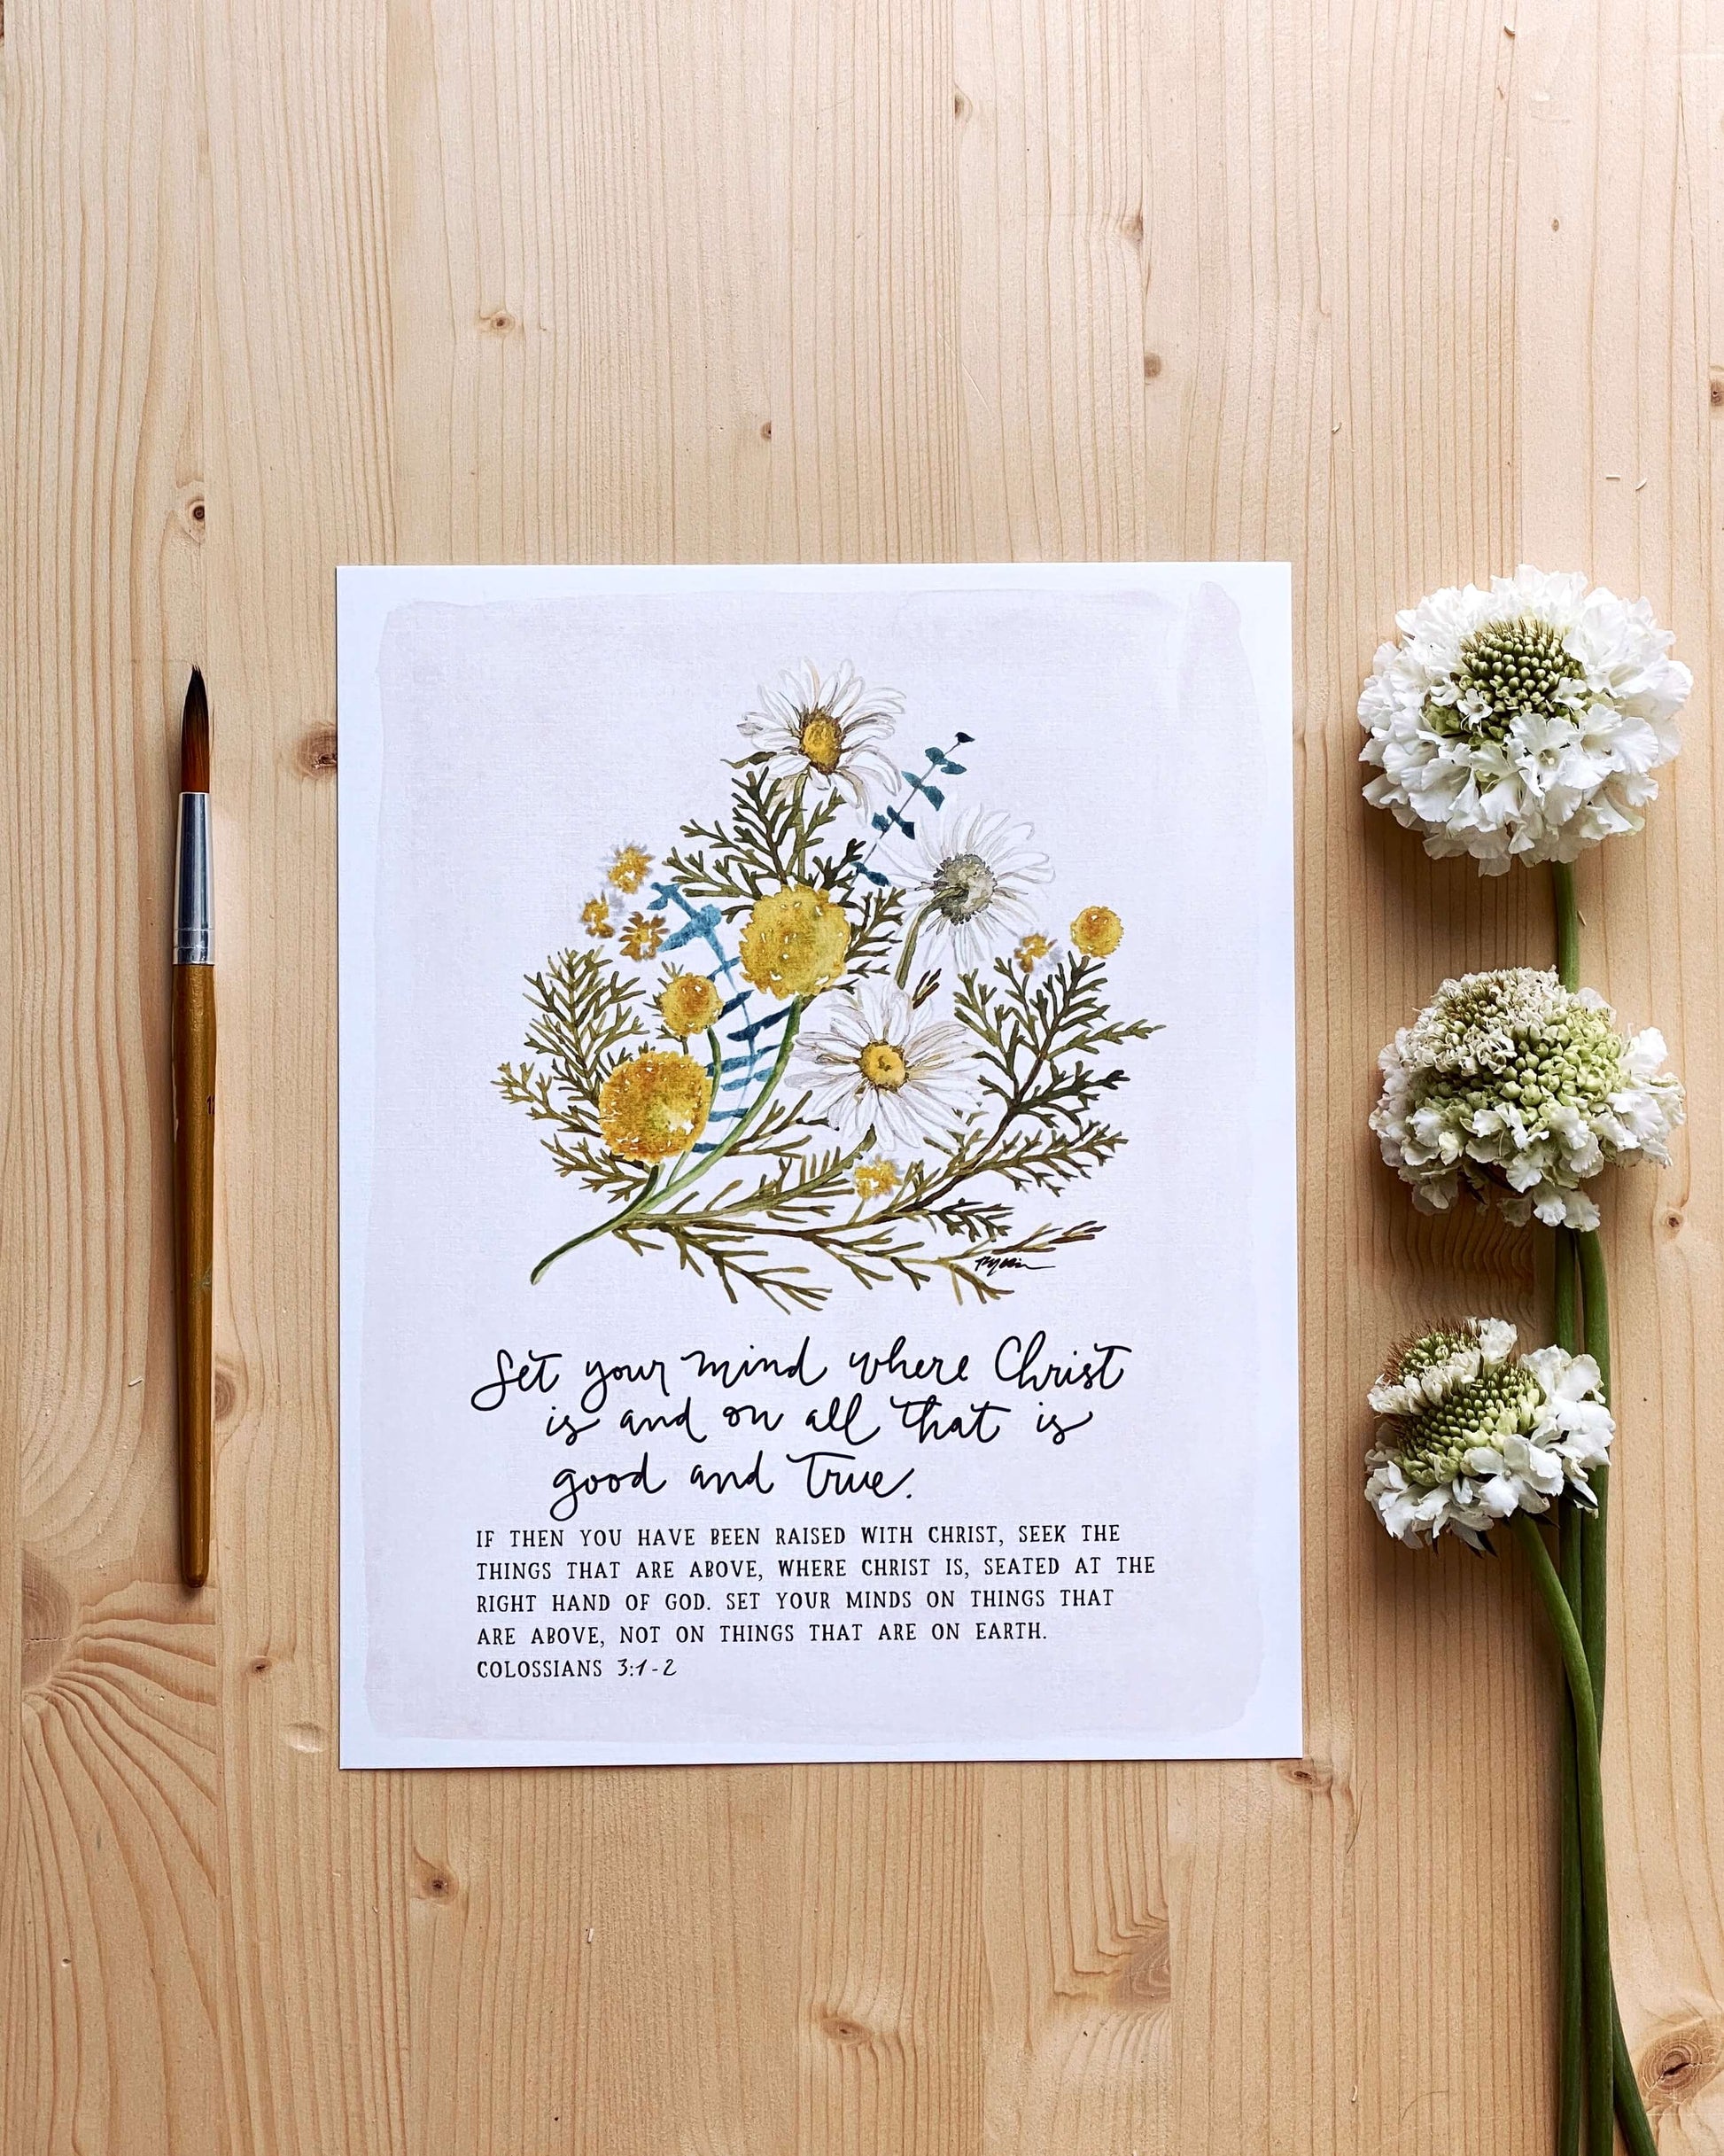 Set your mind where Christ
is and on all that is
good and true.
IF THEN YOU HAVE BEEN RAISED WITH CHRIST, SEEK THE
THINGS THAT ARE ABOVE, WHERE CHRIST IS, SEATED AT THE
RIGHT HAND OF GOD. SET YOUR MINDS ON THINGS THAT
ARE ABOVE, NOT ON THINGS THAT ARE ON EARTH.
COLOSSIANS 3:1-2